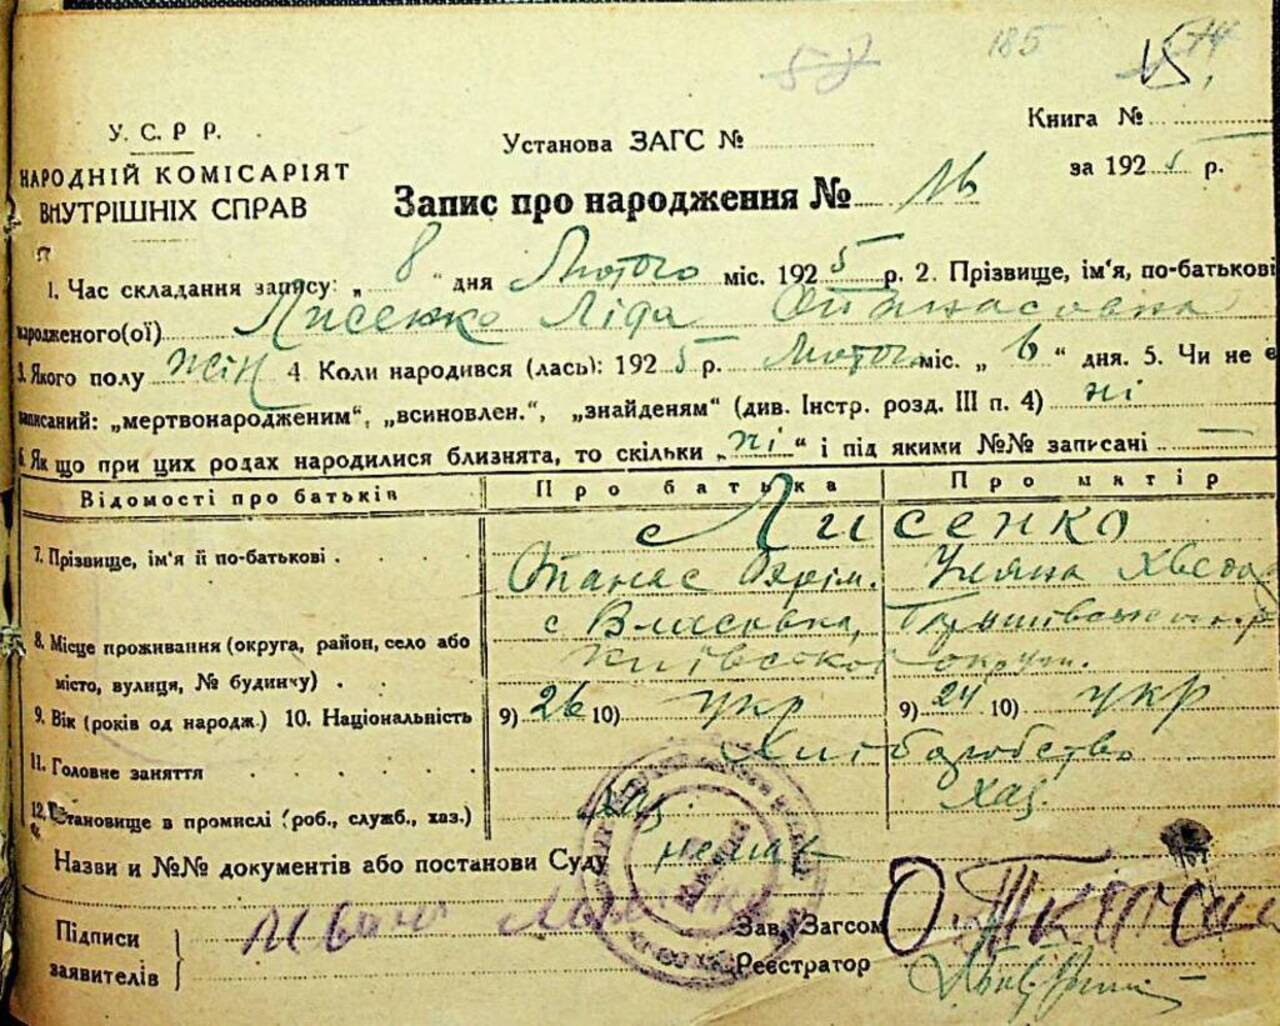 185
У. С. Р Р.
Установа ЗАГС №
Книга №
НАРОДНІЙ КОМІСАРІЯТ
за 1925 р.
ВНУТРІШНІХ СПРАВ
Запис про народження № 16
1. Час складання запису: „ 8 " дня Лютого міс. 1925 р. 2. Прізвище, ім'я, по-батькові
народженого(ої) Лисенко Ліда Опанасовна
3. Якого полу жін 4 Коли народився (лась): 1925 р. Лютого міс. „ 6 “ дня. 5. Чи не є
записаний: „мертвонародженим“, „всиновлен.“, „знайденям“ (див. Інстр. розд. III п. 4) ні
6. Як що при цих родах народилися близнята, то скільки „ ні “ і під якими №№ записані —
Відомості про батьків Про батька Про матір
с Лисенко
7. Прізвище, ім'я й по-батькові . Опанас Яхім. Уляна Хведо
8. Місце проживання (округа, район, село або с Власовка,
Київської округи.
місто, вулиця, № будинку) .
9. Вік (років од народж.) 10. Національність 9) 26 10) укр 9) 24 10) укр
11. Головне заняття Хліборобство
12. Становище в промислі (роб., служб., хаз.) хаз хаз.
Назви и №№ документів або постанови Суду немає
Підписи
заявителів
Зав. Загсом
Реєстратор